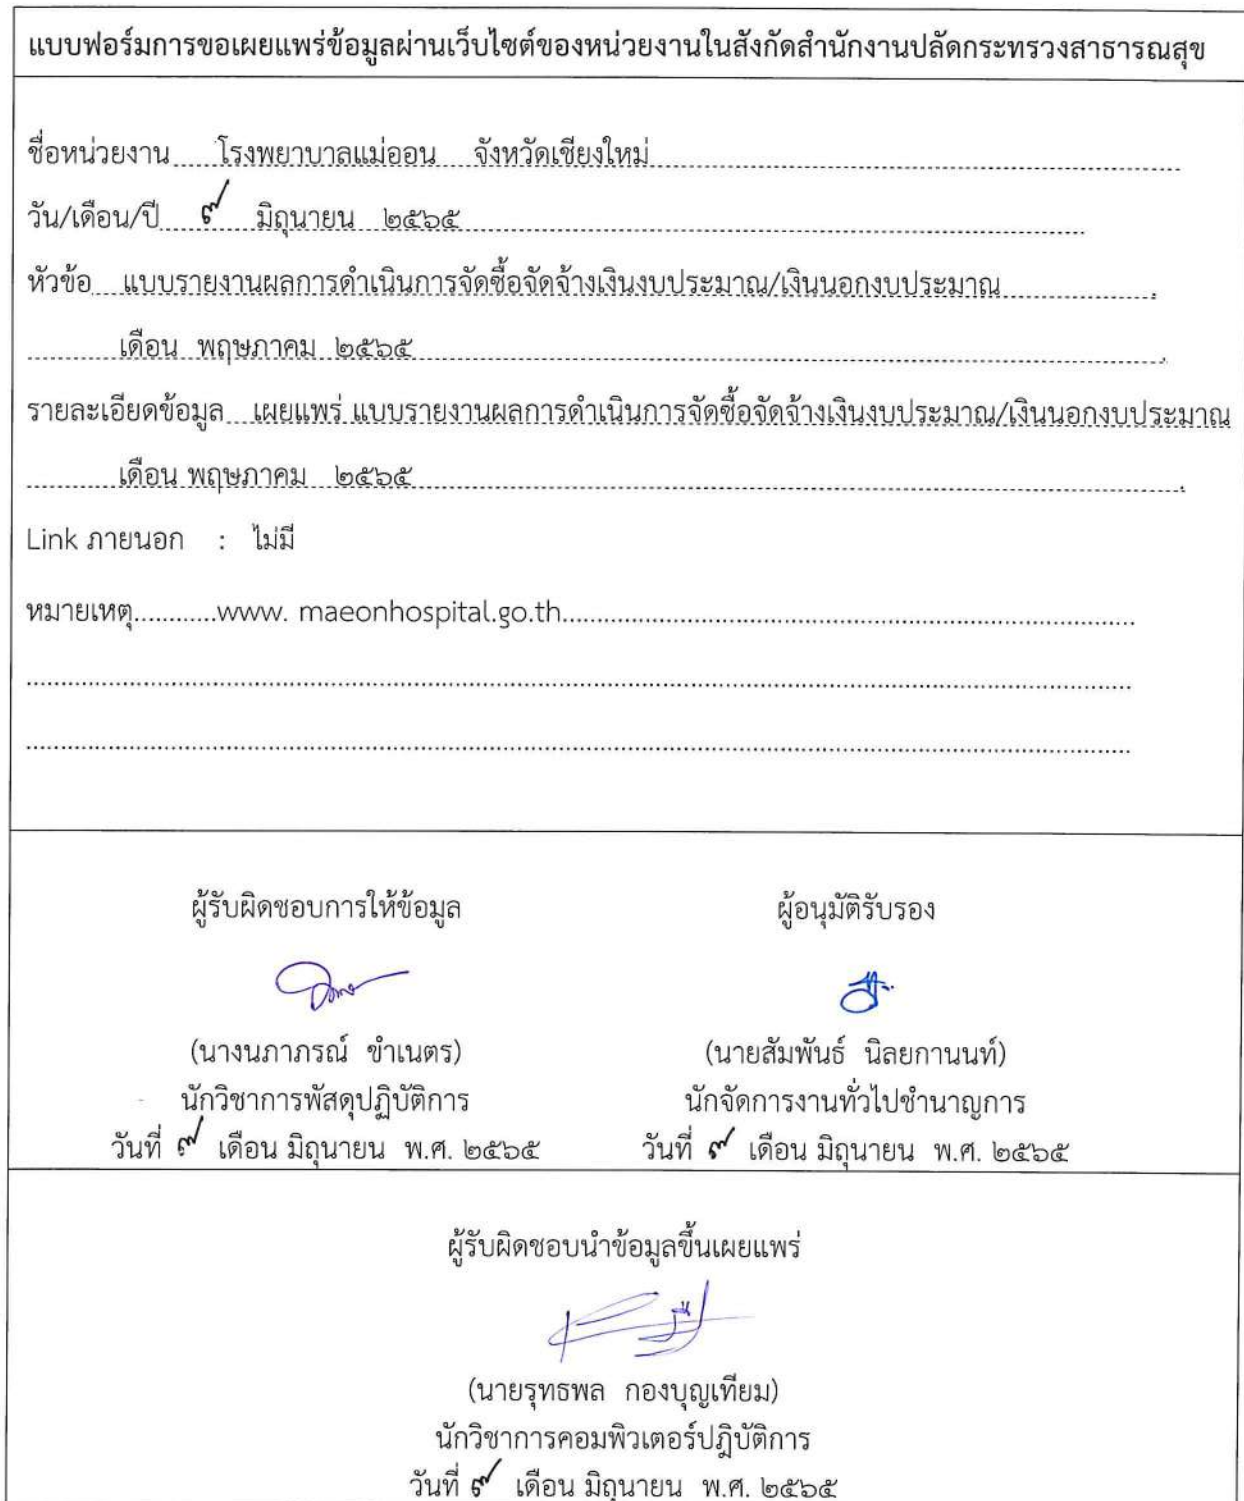 แบบฟอร์มการขอเผยแพร่ข้อมูลผ่านเว็บไซต์ของหน่วยงานในสังกัดสำนักงานปลัดกระทรวงสาธารณสุข
ชื่อหน่วยงาน.....โรงพยาบาลแม่ออน จังหวัดเชียงใหม่.....
วัน/เดือน/ปี.....๙ มิถุนายน ๒๕๖๕.....
หัวข้อ....แบบรายงานผลการดำเนินการจัดซื้อจัดจ้างเงินงบประมาณ/เงินนอกงบประมาณ.....
.....เดือน พฤษภาคม ๒๕๖๕.....
รายละเอียดข้อมูล....เผยแพร่ แบบรายงานผลการดำเนินการจัดซื้อจัดจ้างเงินงบประมาณ/เงินนอกงบประมาณ
.....เดือน พฤษภาคม ๒๕๖๕.....
Link ภายนอก : ไม่มี
หมายเหตุ............www. maeonhospital.go.th.....
ผู้รับผิดชอบการให้ข้อมูล ผู้อนุมัติรับรอง
(นางนภาภรณ์ ขำเนตร) (นายสัมพันธ์ นิลยกานนท์)
นักวิชาการพัสดุปฏิบัติการ นักจัดการงานทั่วไปชำนาญการ
วันที่ ๙ เดือน มิถุนายน พ.ศ. ๒๕๖๕ วันที่ ๙ เดือน มิถุนายน พ.ศ. ๒๕๖๕
ผู้รับผิดชอบนำข้อมูลขึ้นเผยแพร่
(นายรุทธพล กองบุญเทียม)
นักวิชาการคอมพิวเตอร์ปฏิบัติการ
วันที่ ๙ เดือน มิถุนายน พ.ศ. ๒๕๖๕